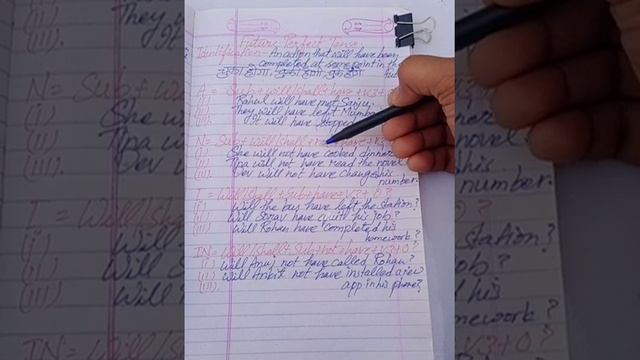 Future Perfect Tense
Identification - An action that will have been
completed at some point in th
चुका होगा, चुकी होगी, चुके होंगे fut
A = Sub + will/shall + have + V3 + O
(i) Rahul will have met Sanju.
(ii) They will have left Mumba
(iii) It will have stopped
N = Sub + will/shall + not + have + V3
(i) She will not have cooked dinner
(ii) Tina will not have read the novel
(iii) Dev will not have change his
number.
I = Will/Shall + sub + have + V3 + O ?
(i) Will the bus have left the station?
(ii) Will have quit his job?
(iii) Will Rohan have completed his
homework?
IN = Will/shall + Sub + not + have + V3 + O ?
(i) Will Anuj not have called Rohan?
(ii) Will Ankit not have installed a new
(iii) app in his phone?